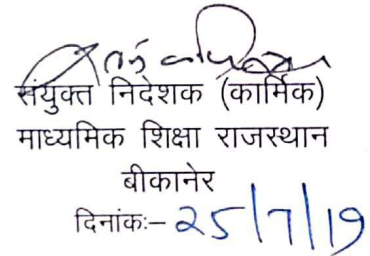 संयुक्त निदेशक (कार्मिक)
माध्यमिक शिक्षा राजस्थान
बीकानेर
दिनांकः– 25/7/19